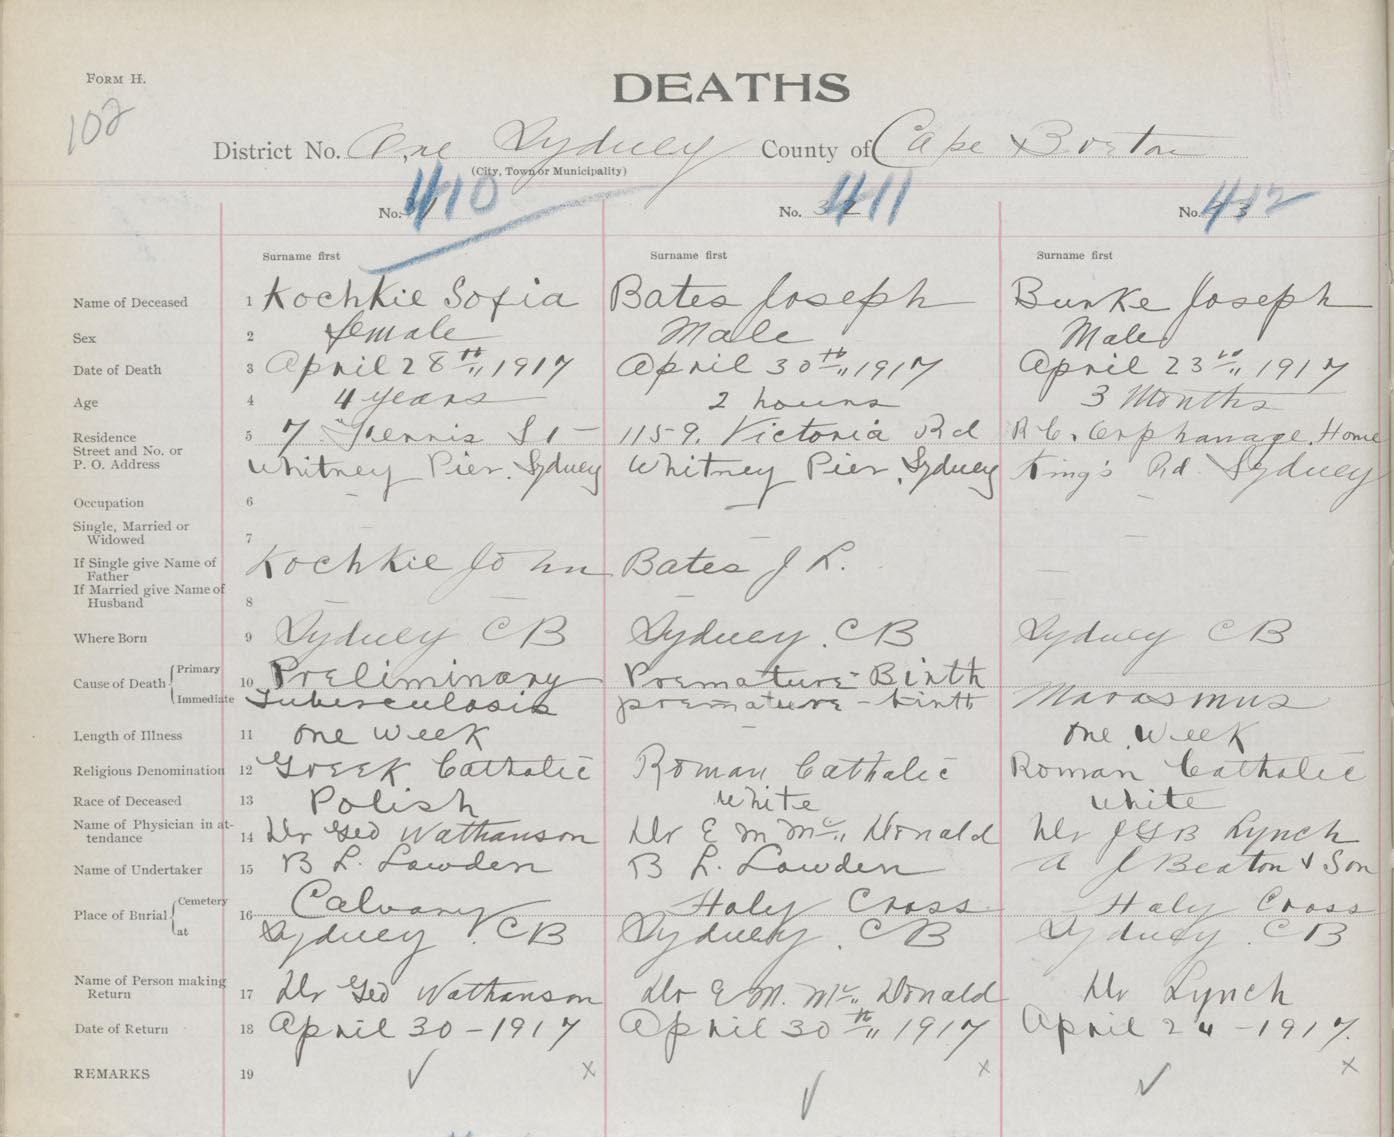 FORM H.
DEATHS
102
District No. One Sydney County of Cape Breton
(City, Town or Municipality)
No. 31 410 No. 32 411 No. 33 412
Surname first Surname first Surname first
Name of Deceased 1 Kochkie Sofia Bates Joseph Burke Joseph
Sex 2 female Male Male
Date of Death 3 April 28th,, 1917 April 30th,, 1917 April 23rd,, 1917
Age 4 4 years 2 hours 3 Months
Residence 5 7 St 1159. Victoria Rd R.C. Orphanage Home
Street and No. or
P. O. Address Whitney Pier, Sydney Whitney Pier, Sydney King's Rd Sydney
Occupation 6 — —
Single, Married or
Widowed 7 — — —
If Single give Name of
Father Kochkie John Bates J L. —
If Married give Name of
Husband 8 — — —
Where Born 9 Sydney CB Sydney. CB Sydney CB
Cause of Death { Primary 10 Preliminary Premature-Birth
Immediate Tuberculosis premature-birth Marasmus
Length of Illness 11 one week — one week
Religious Denomination 12 Greek Catholic Roman Catholic Roman Catholic
Race of Deceased 13 Polish White White
Name of Physician in at-
tendance 14 Dr Geo Nathanson Dr E M Mc,, Donald Dr J G B Lynch
Name of Undertaker 15 B L. Lowden B L. Lowden A J Beaton & Son
Place of Burial { Cemetery 16 Calvary Holy Cross Holy Cross
at Sydney. CB Sydney. CB Sydney. CB
Name of Person making
Return 17 Dr Geo Nathanson Dr E M. Mc,, Donald Dr Lynch
Date of Return 18 April 30-1917 April 30th,, 1917 April 24-1917.
REMARKS 19 ✓ x ✓ x ✓ x